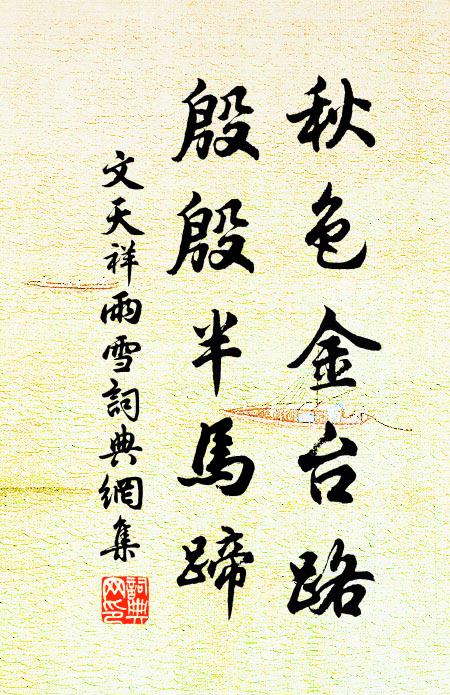 秋色金台路
殷殷半馬蹄
文天祥雨雪詞典網集
詞典網印